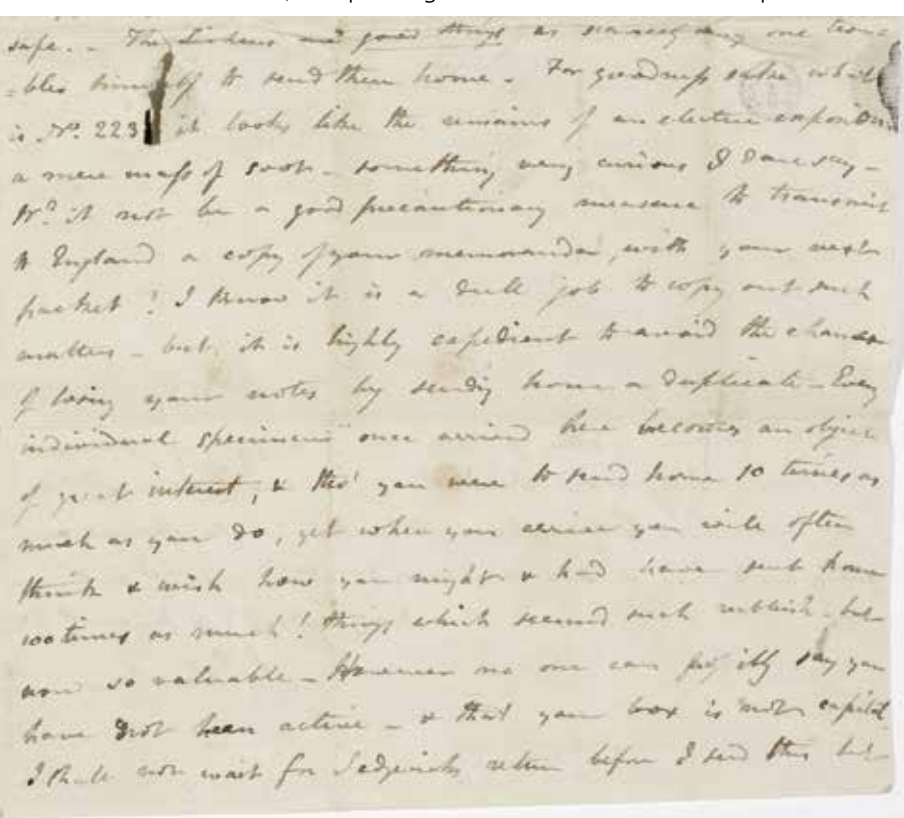 safe. – The Lichens are good things as scarcely any one trou=
=bles himself to send them home – For goodness sake what
is No. 223 it looks like the remains of an electric explosion
a mere mass of soot – something very curious I dare say –
Wd it not be a good precautionary measure to transmit
to England a copy of your memoranda, with your next
packet? I know it is a dull job to copy out such
matters – but it is highly expedient to avoid the chance
of losing your notes by sending home a duplicate – Every
individual specimen once arrived here becomes an object
of great interest, & tho' you were to send home 10 times as
much as you do, yet when you arrive you will often
think & wish how you might & had have sent home
100 times as much! things which seemed such rubbish – but
now so valuable – However no one can possibly say you
have not been active – & that your box is not capital
I shall not wait for Sedgwick's return before I send this but